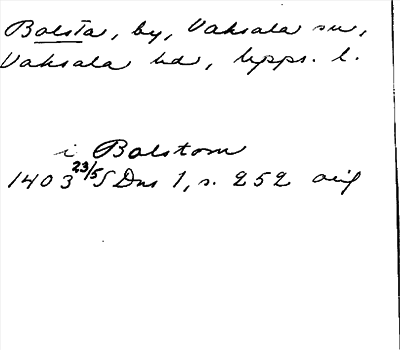 Balsta, by, Vaksala sn,
Vaksala hd, Upps. l.
i Balstom
1403 23/5 SDns 1, s. 252 orig